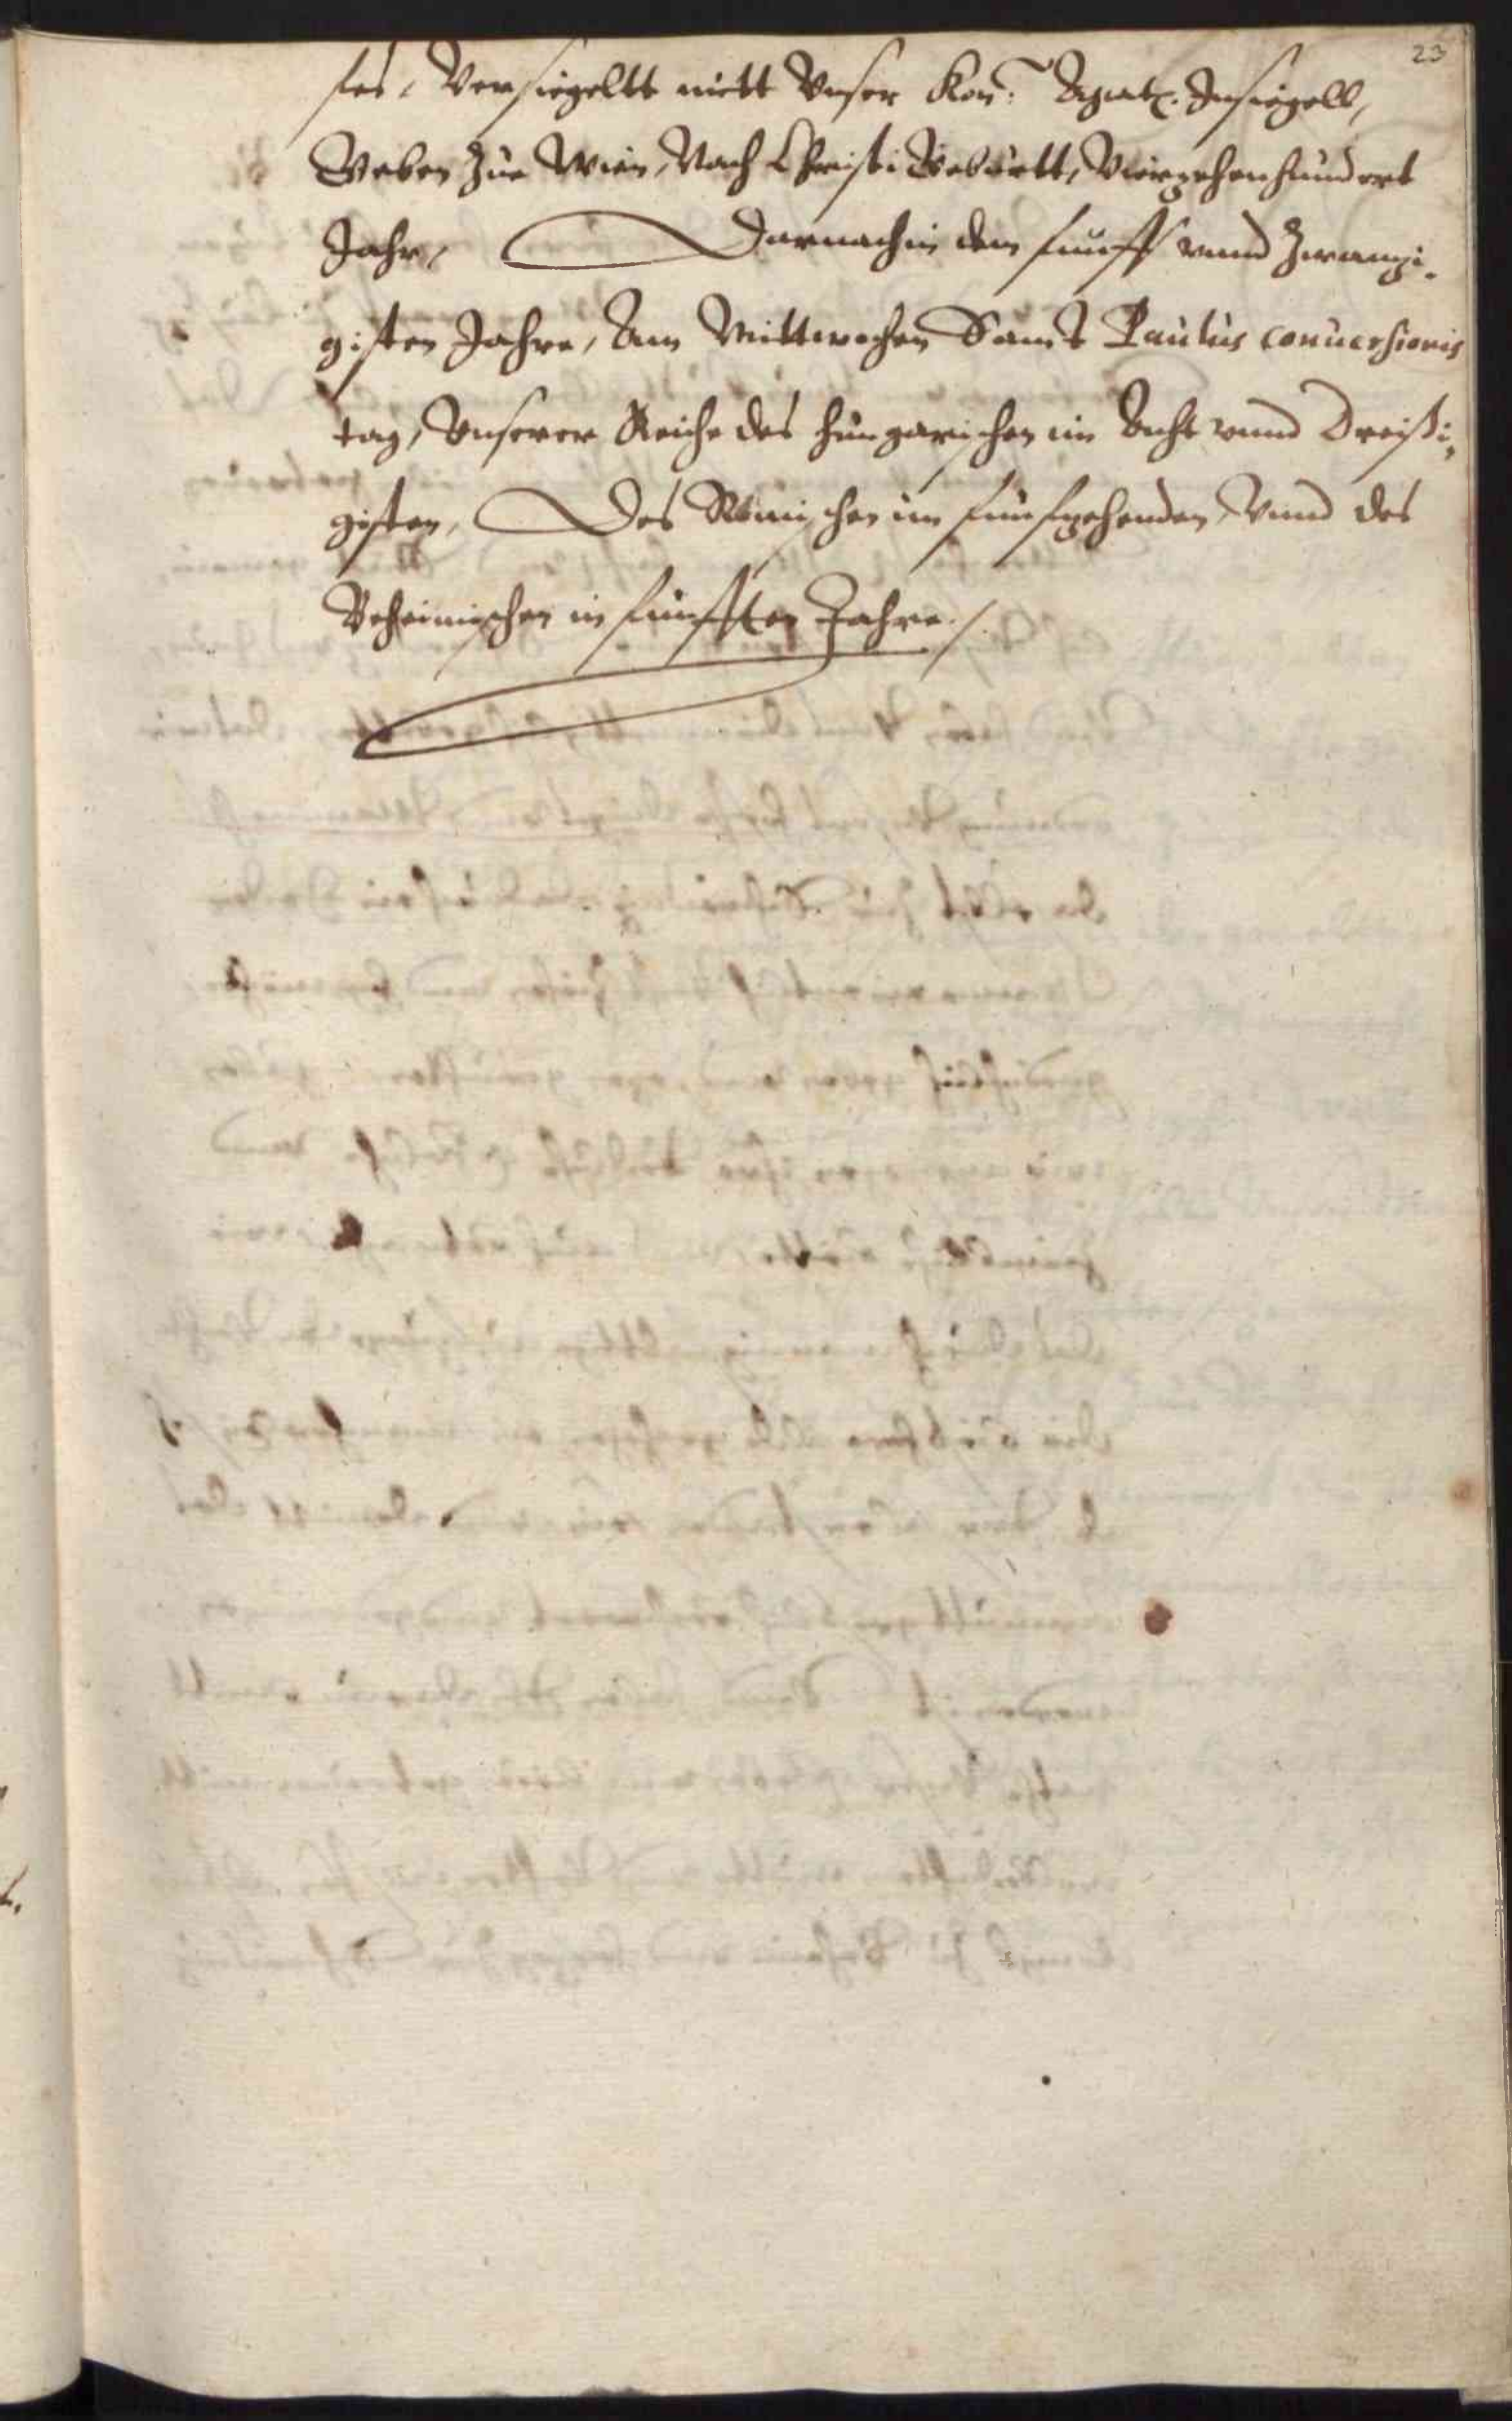 23
fes, Versiegeltt mitt Vnser Kön: Maiat. Insiegell,
Geben zue Wien, Nach Christi Geburtt, Vierzehenhundert
Jahr, Darnach in dem funff vnnd Zwanzi-
gisten Jahre, Am Mittwochen Sanct Paulus conuersionis
tag, Vnserer Reiche des Hungarischen im Acht vnnd Dreißi-
gisten, Des Römischen im funfzehenden, Vnnd des
Beheimischen in funfften Jahre ./.